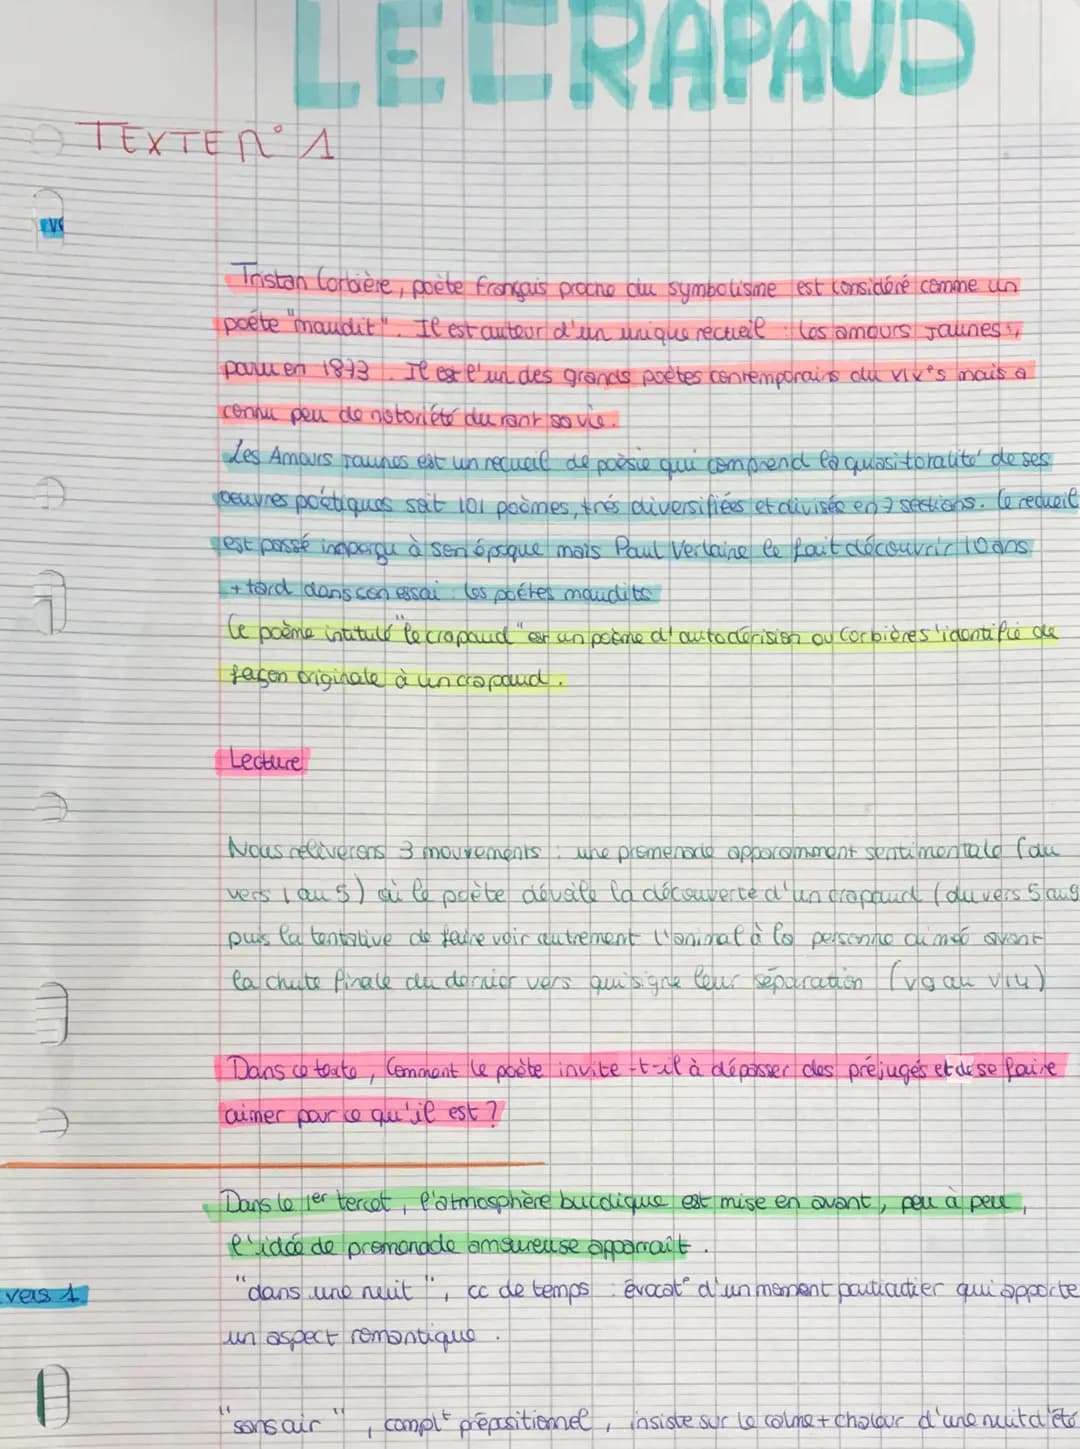 LE CRAPAUD
TEXTE n° 1
Tristan Corbière, poète français proche du symbolisme est considéré comme un
poète "maudit". Il est auteur d'un unique recueil : Les amours Jaunes,
paru en 1873. Il est l'un des grands poètes contemporains du XIX's mais a
connu peu de notoriété durant sa vie.
Les Amours Jaunes est un recueil de poésie qui comprend la quasi totalité de ses
oeuvres poétiques soit 101 poèmes, très diversifiées et divisée en 7 sections. Ce recueil
est passé inaperçu à son époque mais Paul Verlaine le fait découvrir 10 ans
+ tard dans son essai : les poètes maudits
Ce poème intitulé "le crapaud" est un poème d'autodérision où Corbière s'identifie de
façon originale à un crapaud.
Lecture
Nous relèverons 3 mouvements : une promenade apparemment sentimentale (du
vers 1 au 5) où le poète dévoile la découverte d'un crapaud (du vers 5 au 9
puis la tentative de faire voir autrement l'animal à la personne aimée avant
la chute finale du dernier vers qui signe leur séparation (v9 au v14)
Dans ce texte, Comment le poète invite-t-il à dépasser des préjugés et de se faire
aimer pour ce qu'il est ?
Dans le 1er tercet, l'atmosphère bucolique est mise en avant, peu à peu,
l'idée de promenade amoureuse apparaît.
vers 1 "dans une nuit", cc de temps : évocat° d'un moment particulier qui apporte
un aspect romantique.
"sans air", complt prépositionnel, insiste sur le calme + chaleur d'une nuit d'été